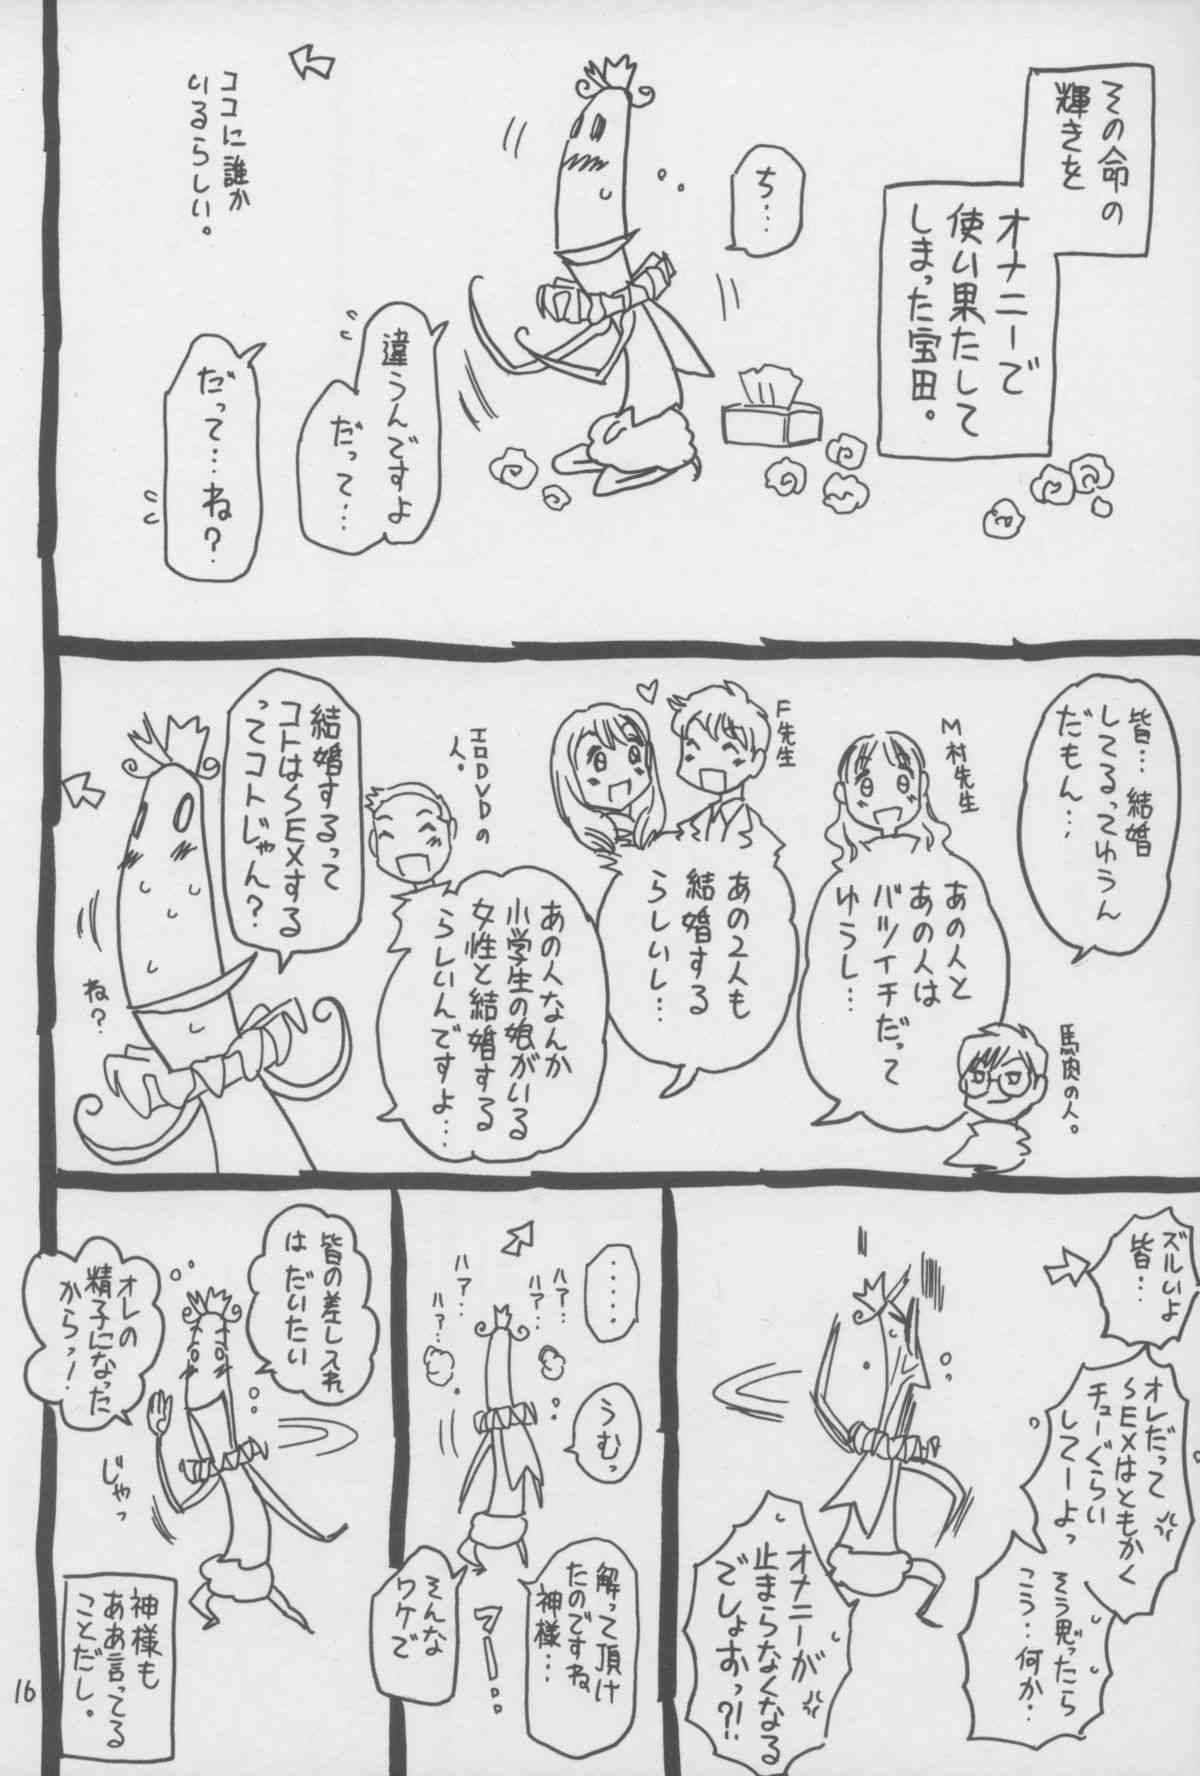 その命の
輝きを
オナニーで
使い果たして
しまった宝田。
ち…
違うんですよ
だって…
だって…ね？
ココに誰か
いるらしい。
皆…結婚
してるってゆうん
だもん…
馬肉の人。
M村先生
あの人と
あの人は
バツイチだって
ゆうし…
F先生
あの2人も
結婚する
らしいし…
エロDVDの
人。
あの人なんか
小学生の娘がいる
女性と結婚する
らしいんですよ…
結婚するって
コトはSEXする
ってコトじゃん？
ね？
ズルいよ
皆…
オレだって
SEXはともかく
チューぐらい
してーよっ
そう思ったら
こう…何か…
オナニーが
止まらなくなる
でしょおっ？！
……
うむっ
ハア…
ハア…
ハア…
ハア…
解って頂け
たのですね
神様…
そんな
ワケで
皆の差し入れ
は だいたい
オレの
精子になった
からっ！
じゃっ
神様も
ああ言ってる
ことだし。
16